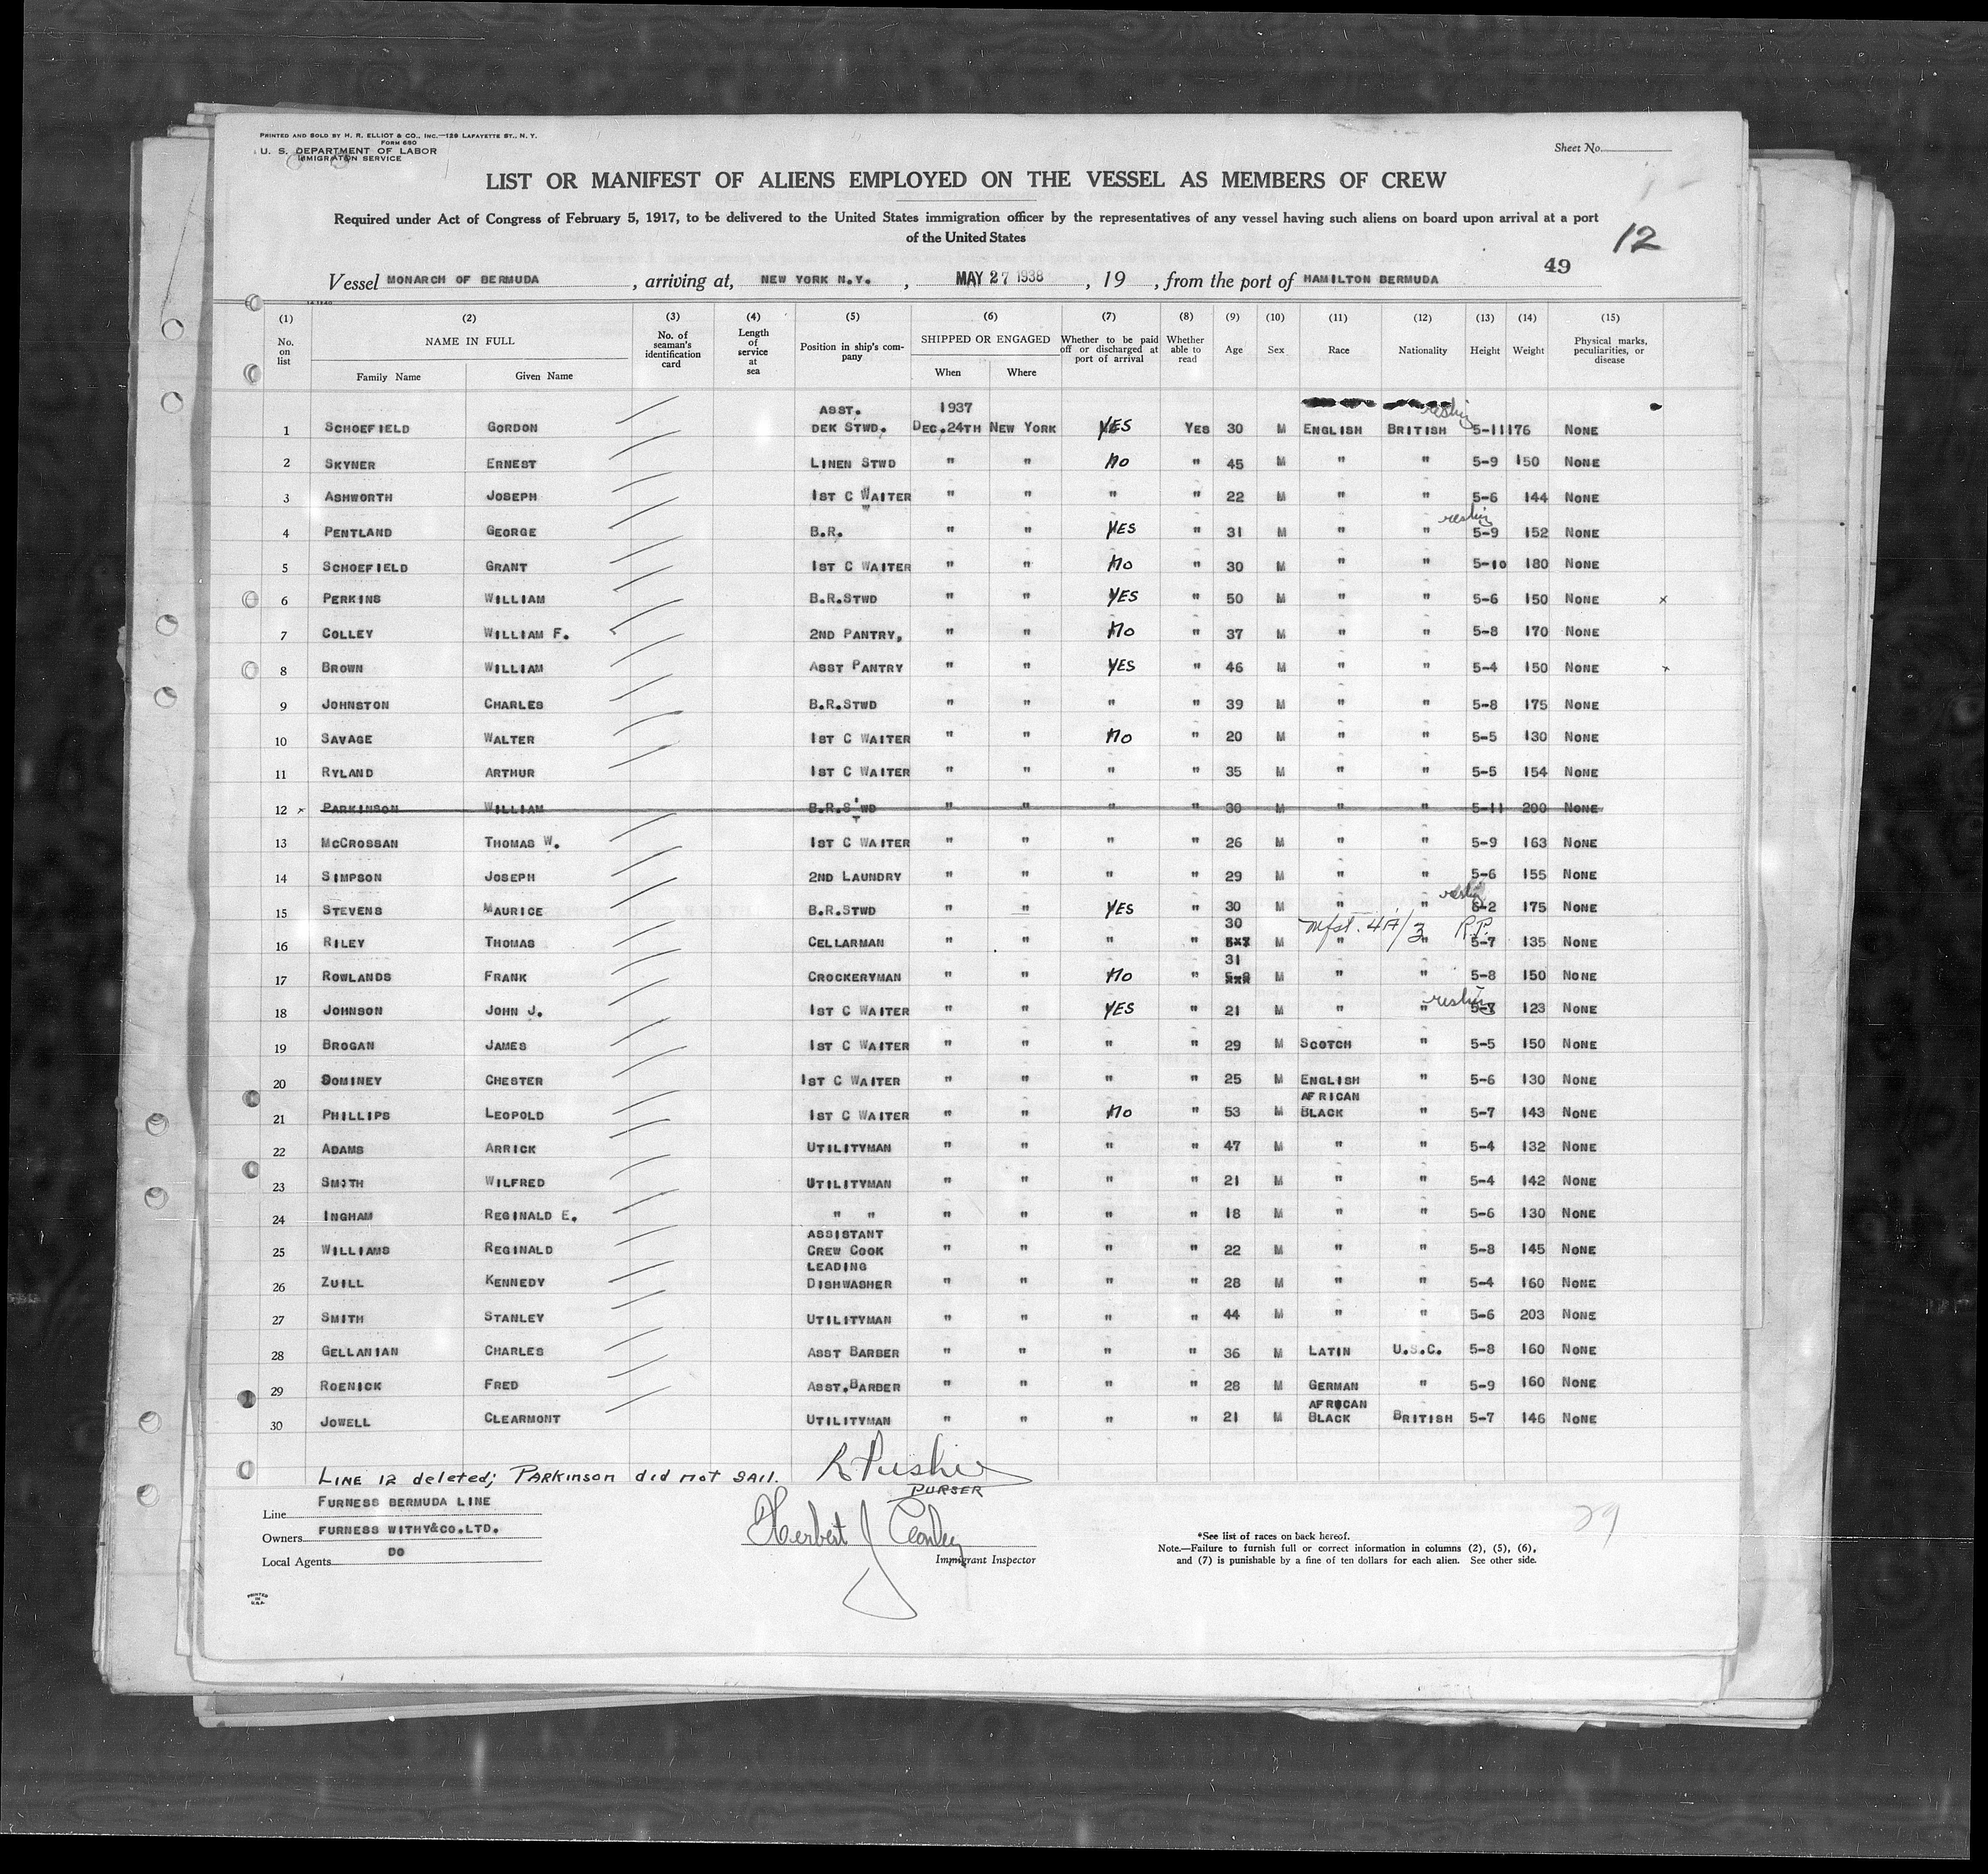 PRINTED AND SOLD BY H. R. ELLIOT & CO., INC.—129 LAFAYETTE ST., N. Y.
FORM 680
U. S. DEPARTMENT OF LABOR
IMMIGRATION SERVICE
Sheet No.
LIST OR MANIFEST OF ALIENS EMPLOYED ON THE VESSEL AS MEMBERS OF CREW
Required under Act of Congress of February 5, 1917, to be delivered to the United States immigration officer by the representatives of any vessel having such aliens on board upon arrival at a port
of the United States
12
49
Vessel MONARCH OF BERMUDA, arriving at, NEW YORK N.Y., MAY 27 1938, 19 , from the port of HAMILTON BERMUDA
(1) (2) (3) (4) (5) (6) (7) (8) (9) (10) (11) (12) (13) (14) (15)
No. on list NAME IN FULL No. of seaman's identification card Length of service at sea Position in ship's company SHIPPED OR ENGAGED Whether to be paid off or discharged at port of arrival Whether able to read Age Sex Race Nationality Height Weight Physical marks, peculiarities, or disease
Family Name Given Name When Where
ASST. 1937 reship
1 SCHOEFIELD GORDON DEK STWD. DEC.24TH NEW YORK YES YES 30 M ENGLISH BRITISH 5-11 176 NONE
2 SKYNER ERNEST LINEN STWD " " NO " 45 M " " 5-9 150 NONE
3 ASHWORTH JOSEPH 1ST C WAITER " " " " 22 M " " 5-6 144 NONE
reship
4 PENTLAND GEORGE B.R. " " YES " 31 M " " 5-9 152 NONE
5 SCHOEFIELD GRANT 1ST C WAITER " " NO " 30 M " " 5-10 180 NONE
6 PERKINS WILLIAM B.R.STWD " " YES " 50 M " " 5-6 150 NONE x
7 COLLEY WILLIAM F. 2ND PANTRY, " " NO " 37 M " " 5-8 170 NONE
8 BROWN WILLIAM ASST PANTRY " " YES " 46 M " " 5-4 150 NONE x
9 JOHNSTON CHARLES B.R.STWD " " " " 39 M " " 5-8 175 NONE
10 SAVAGE WALTER 1ST C WAITER " " NO " 20 M " " 5-5 130 NONE
11 RYLAND ARTHUR 1ST C WAITER " " " " 35 M " " 5-5 154 NONE
12 x PARKINSON WILLIAM B.R.S'WD " " " " 30 M " " 5-11 200 NONE
13 MCCROSSAN THOMAS W. 1ST C WAITER " " " " 26 M " " 5-9 163 NONE
14 SIMPSON JOSEPH 2ND LAUNDRY " " " " 29 M " " 5-6 155 NONE
reship
15 STEVENS MAURICE B.R.STWD " " YES " 30 M " " 6-2 175 NONE
30 mfst. 4A/3 R.P.
16 RILEY THOMAS CELLARMAN " " " " M " " 5-7 135 NONE
31
17 ROWLANDS FRANK CROCKERYMAN " " NO " M " " 5-8 150 NONE
reship
18 JOHNSON JOHN J. 1ST C WAITER " " YES " 21 M " " 5-7 123 NONE
19 BROGAN JAMES 1ST C WAITER " " " " 29 M SCOTCH " 5-5 150 NONE
20 DOMINEY CHESTER 1ST C WAITER " " " " 25 M ENGLISH " 5-6 130 NONE
AFRICAN
21 PHILLIPS LEOPOLD 1ST C WAITER " " NO " 53 M BLACK " 5-7 143 NONE
22 ADAMS ARRICK UTILITYMAN " " " " 47 M " " 5-4 132 NONE
23 SMITH WILFRED UTILITYMAN " " " " 21 M " " 5-4 142 NONE
24 INGHAM REGINALD E. " " " " " " 18 M " " 5-6 130 NONE
ASSISTANT
25 WILLIAMS REGINALD CREW COOK " " " " 22 M " " 5-8 145 NONE
LEADING
26 ZUILL KENNEDY DISHWASHER " " " " 28 M " " 5-4 160 NONE
27 SMITH STANLEY UTILITYMAN " " " " 44 M " " 5-6 203 NONE
28 GELLANIAN CHARLES ASST BARBER " " " " 36 M LATIN U.S.C. 5-8 160 NONE
29 ROENICK FRED ASST.BARBER " " " " 28 M GERMAN " 5-9 160 NONE
AFRICAN
30 JOWELL CLEARMONT UTILITYMAN " " " " 21 M BLACK BRITISH 5-7 146 NONE
LINE 12 deleted; PARKINSON did not SAIL.
PURSER
Line FURNESS BERMUDA LINE
Owners FURNESS WITHY&CO.LTD.
Local Agents DO
Herbert J
Immigrant Inspector
29
*See list of races on back hereof.
Note.—Failure to furnish full or correct information in columns (2), (5), (6),
and (7) is punishable by a fine of ten dollars for each alien. See other side.
PRINTED
IN
U.S.A.